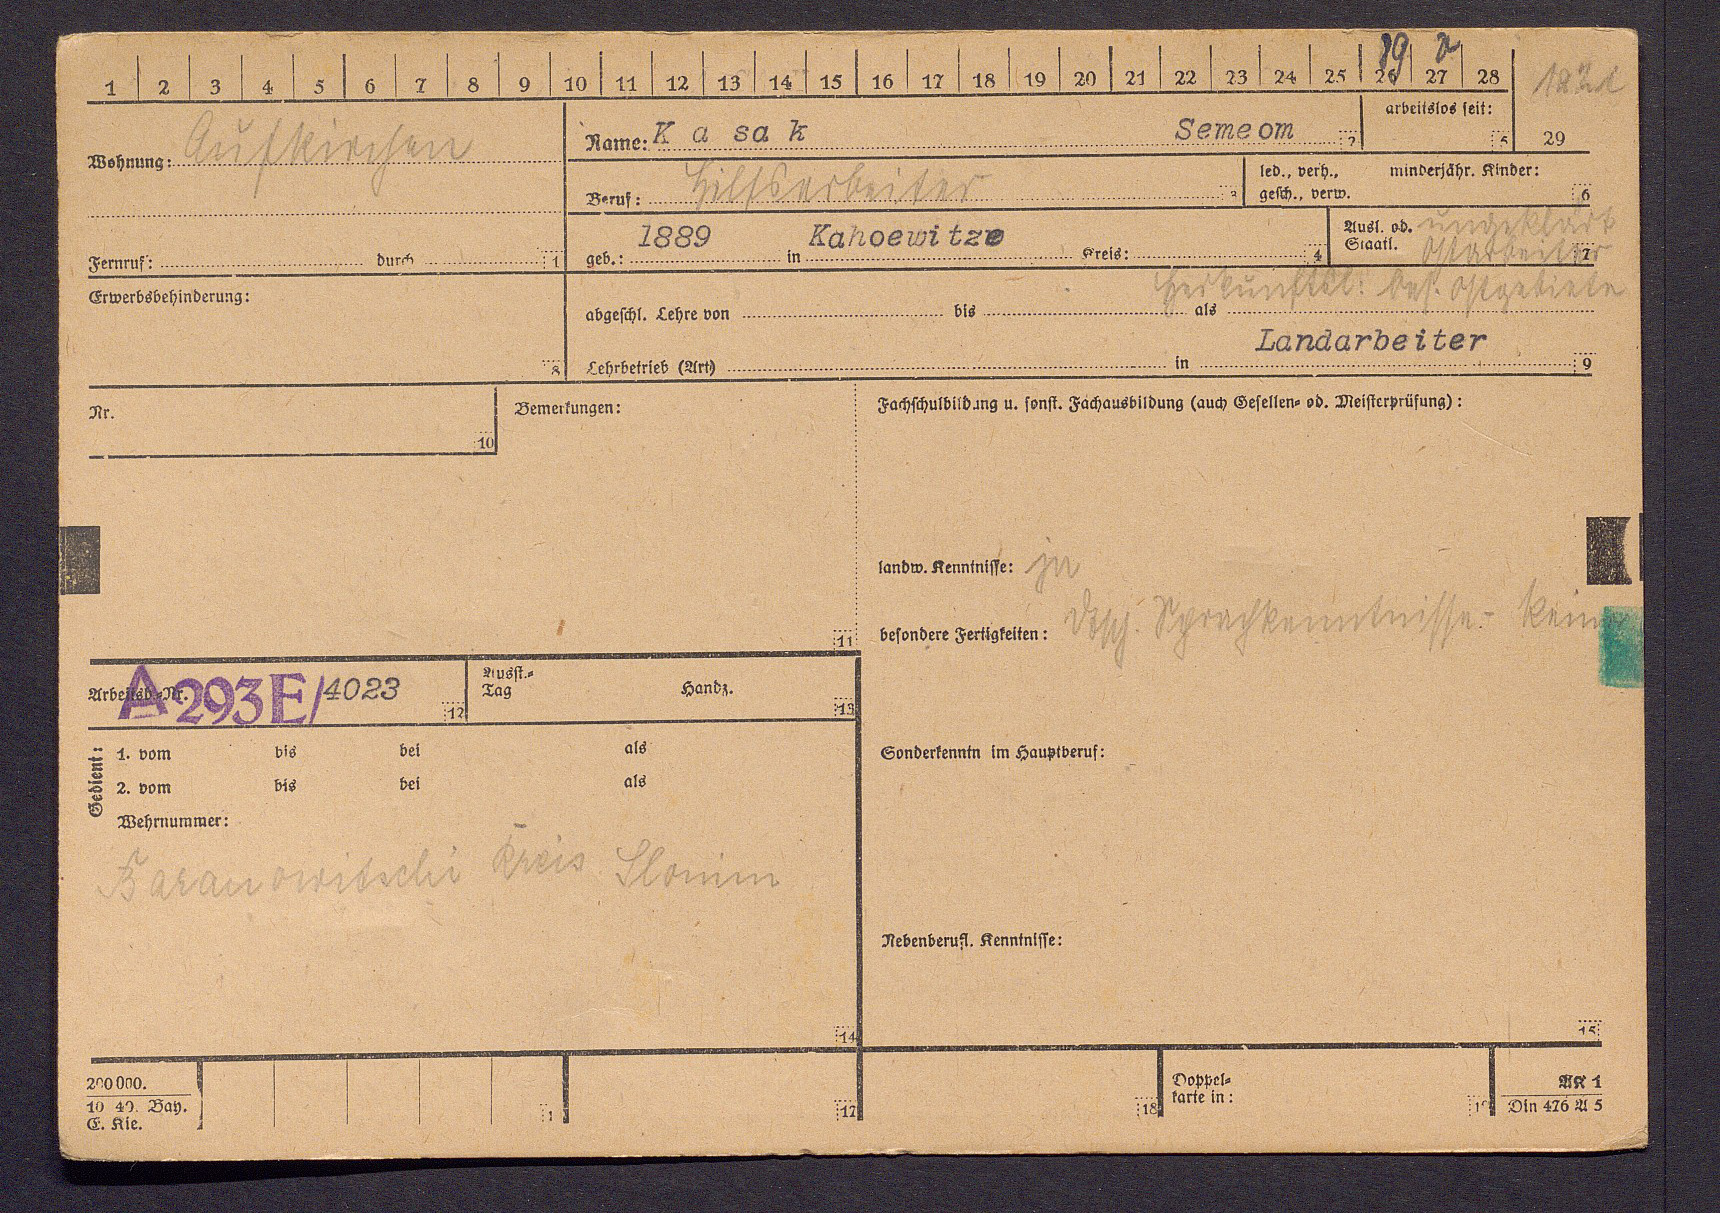 1 2 3 4 5 6 7 8 9 10 11 12 13 14 15 16 17 18 19 20 21 22 23 24 25 26 27 28
89
Wohnung: Aufkirchen
Name: Kasak Semeom 2
arbeitslos seit: 5
29
Beruf: Hilfsarbeiter 3
led., verh., minderjähr. Kinder:
gesch., verw. 6
Fernruf: durch 1
1889 Kahoewitze
geb.: in Kreis: 4
Ausl. od. ungeklärt
Staatl. Ostarbeiter 7
Herkunftsl: bes. Ostgebiete
Erwerbsbehinderung: 8
abgeschl. Lehre von bis als
Landarbeiter
Lehrbetrieb (Art) in 9
Nr. 10
Bemerkungen: 11
Fachschulbildung u. sonst. Fachausbildung (auch Gesellen- od. Meisterprüfung):
landw. Kenntnisse: ja
besondere Fertigkeiten: Dtsch. Sprachkenntnisse - keine
Arbeitsb.-Nr. A 293E/4023 12
Ausst.-
Tag Handz. 13
Gedient:
1. vom bis bei als
2. vom bis bei als
Wehrnummer:
Baranowitschi Kreis Slonim
14
Sonderkenntn im Hauptberuf:
Nebenberufl. Kenntnisse:
15
200000.
10 40. Bay.
E. Kie.
17
18
Doppel-
karte in:
AK 1
Din 476 A 5